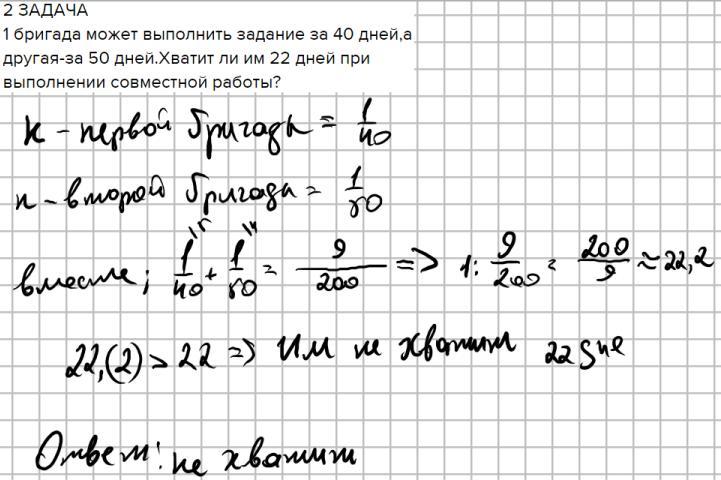 2 ЗАДАЧА
1 бригада может выполнить задание за 40 дней,а
другая-за 50 дней.Хватит ли им 22 дней при
выполнении совместной работы?
к - первой бригады = 1/40
к - второй бригады = 1/50
вместе; 1/40 + 1/50 = 9/200 => 1: 9/200 = 200/9 ≈ 22,2
22,(2) > 22 => Им не хватит 22 дне
Ответ: не хватит